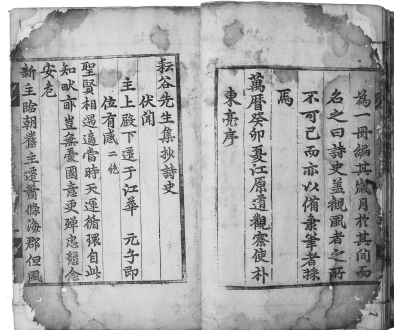 為一冊編其歲月於其間而
名之曰詩史盖觀風者之所
不可已而亦以備秉筆者採
焉
萬曆癸卯夏江原道觀察使朴
東亮序
耘谷先生集抄詩史
伏聞
主上殿下遷于江華 元子即
位有感 二絶
聖賢相遇適當時天運循環自此
知畎畝豈無憂國意更殫忠懇念
安危
新主臨朝舊主遷蕭條海郡但風